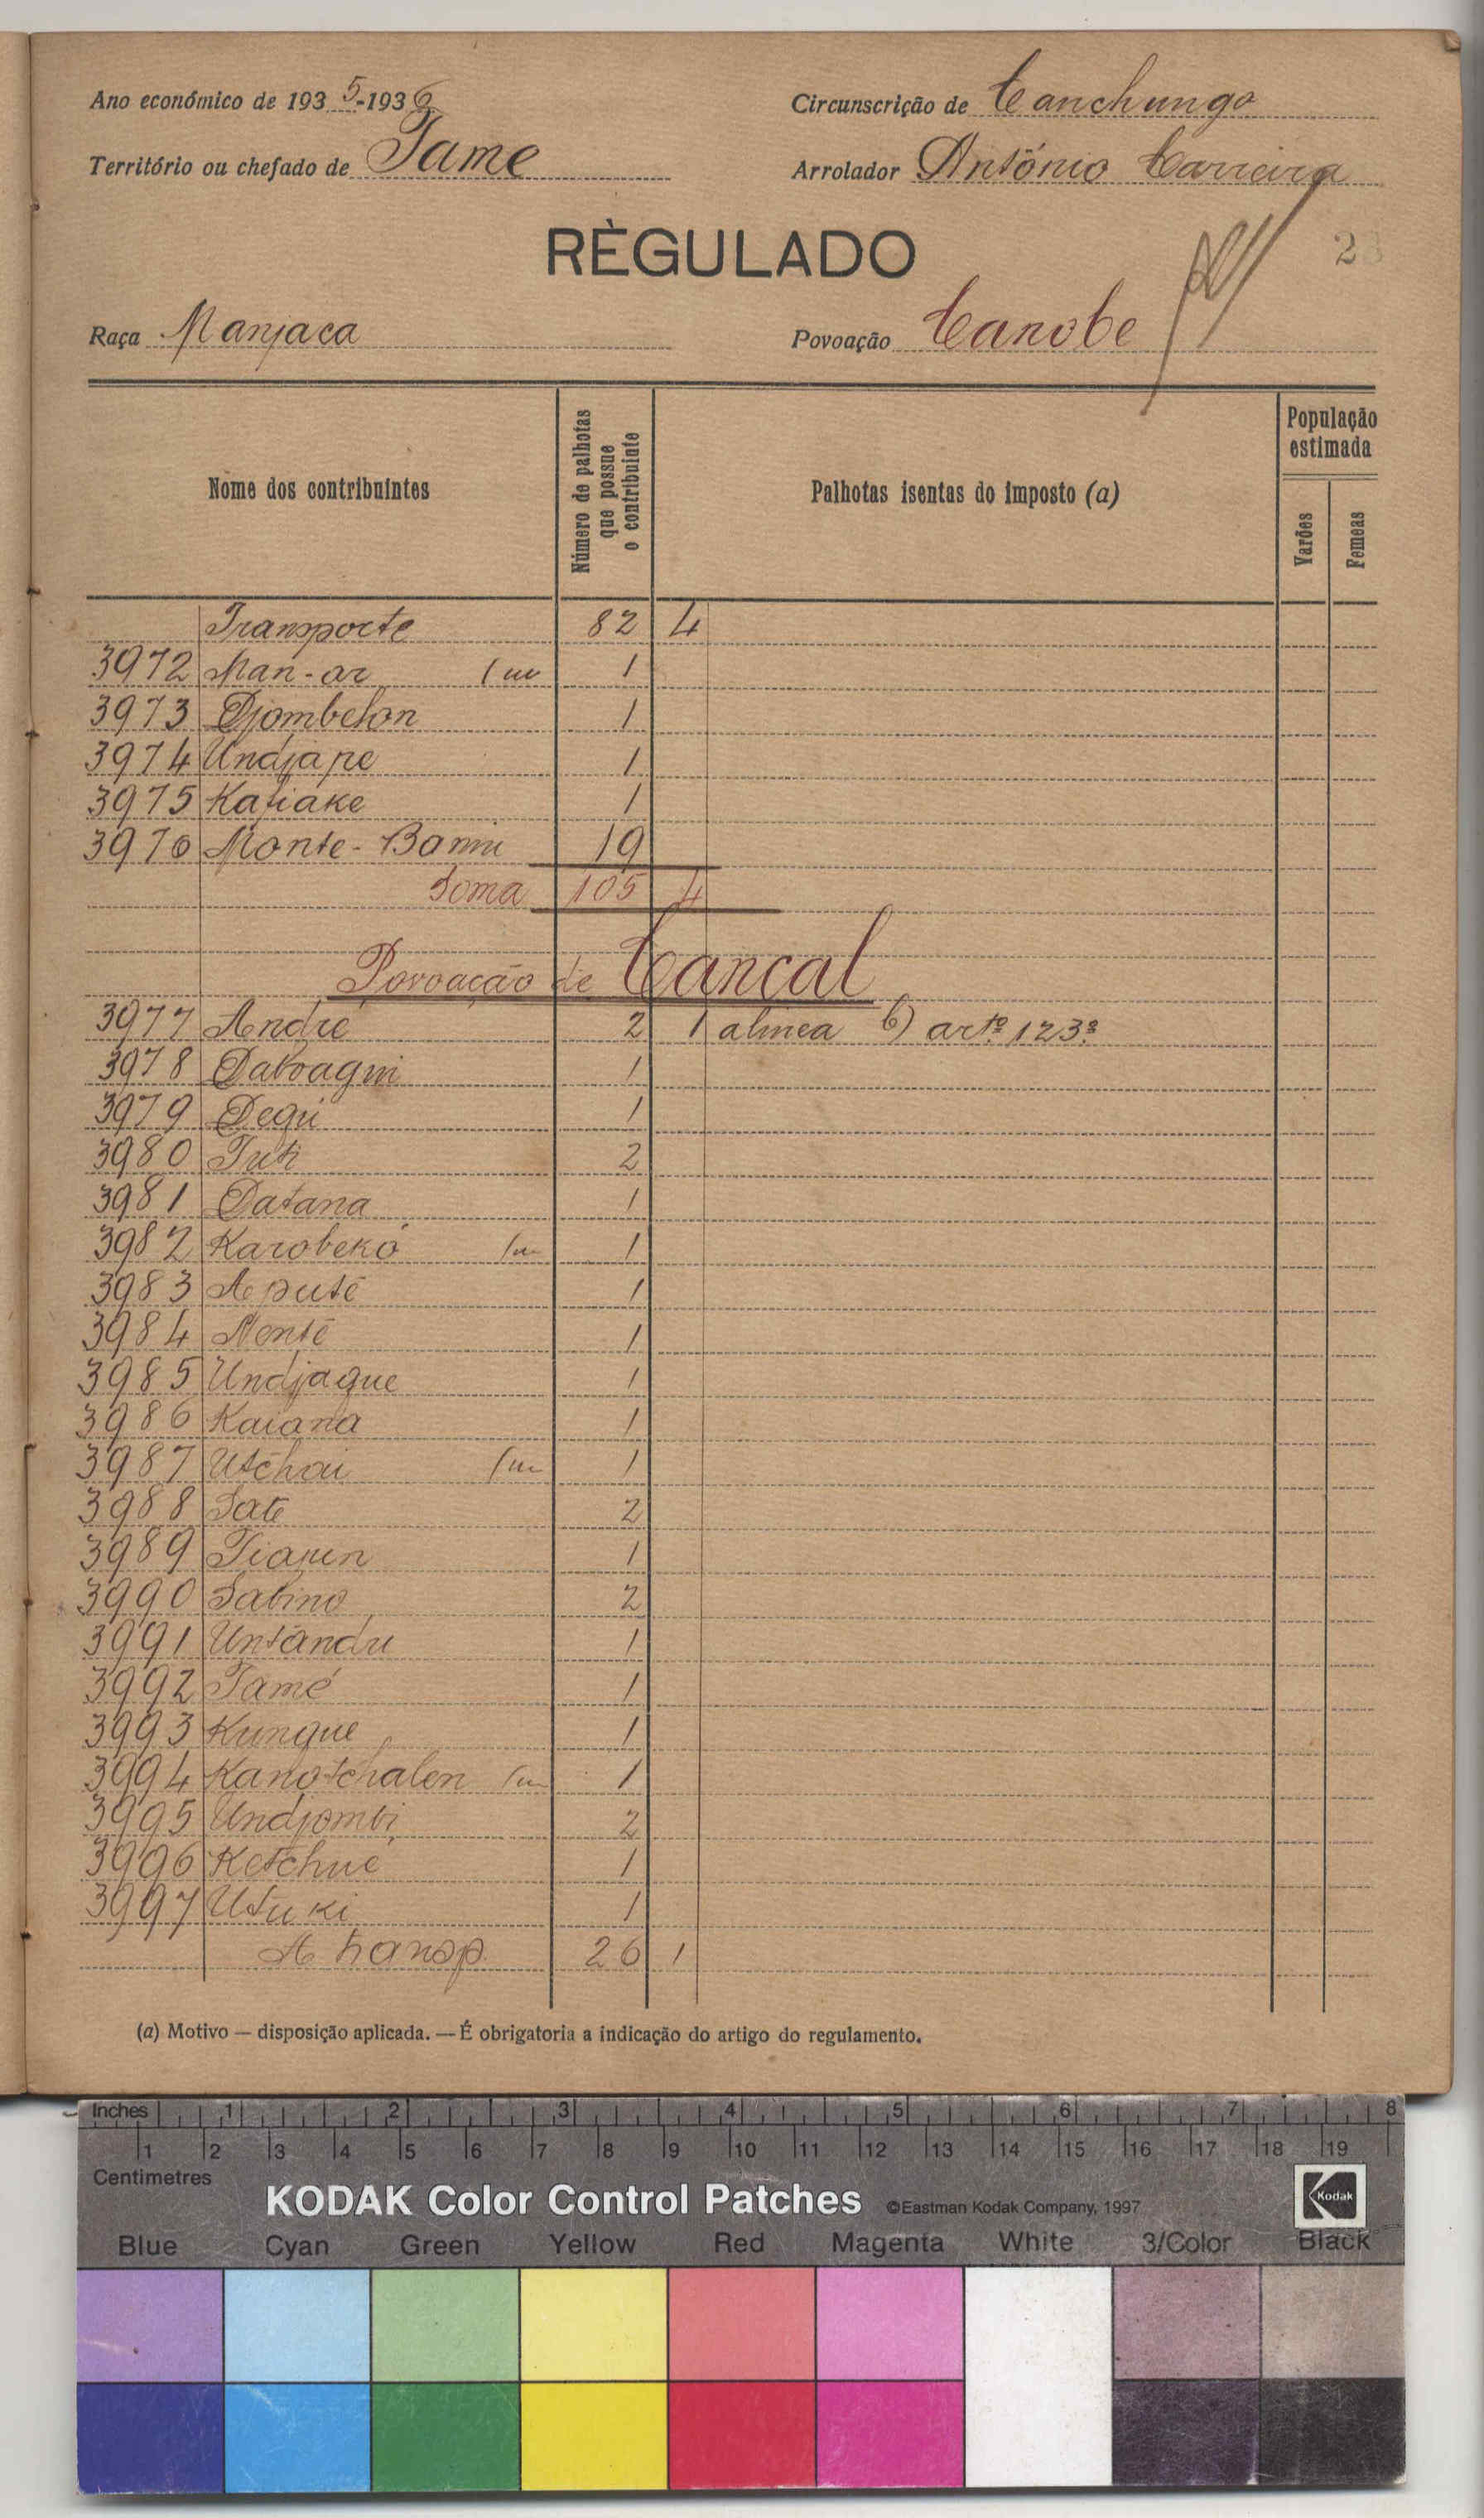 Ano económico de 1935-1936 Circunscrição de Canchungo
Território ou chefado de Tame Arrolador António Carreira
RÈGULADO 23
Raça Manjaca Povoação Canobe
Nome dos contribuintes
Número de palhotas que possue o contribuinte
Palhotas isentas do imposto (a)
População estimada
Varões
Femeas
Transporte 82 4
3972 Man-ar 1
3973 Djombelon 1
3974 Undjape 1
3975 Kafiake 1
3976 Monte-Bamu 19
Soma 105 4
Povoação de Cancal
3977 André 2 1 alinea b) artº. 123º
3978 Daboagni 1
3979 Degui 1
3980 Tuk 2
3981 Datana 1
3982 Karobekó 1
3983 Aputé 1
3984 Nenté 1
3985 Undjaque 1
3986 Kaiana 1
3987 Utchai 1
3988 Sate 2
3989 Tiarin 1
3990 Sabino 2
3991 Untandu 1
3992 Tamé 1
3993 Kungue 1
3994 Kanotchalen 1
3995 Undjombi 2
3996 Ketchué 1
3997 Utuki 1
A transp. 26 1
(a) Motivo — disposição aplicada. — É obrigatoria a indicação do artigo do regulamento.
Inches 1 2 3 4 5 6 7 8
1 2 3 4 5 6 7 8 9 10 11 12 13 14 15 16 17 18 19
Centimetres
KODAK Color Control Patches ©Eastman Kodak Company, 1997 Kodak
Blue Cyan Green Yellow Red Magenta White 3/Color Black